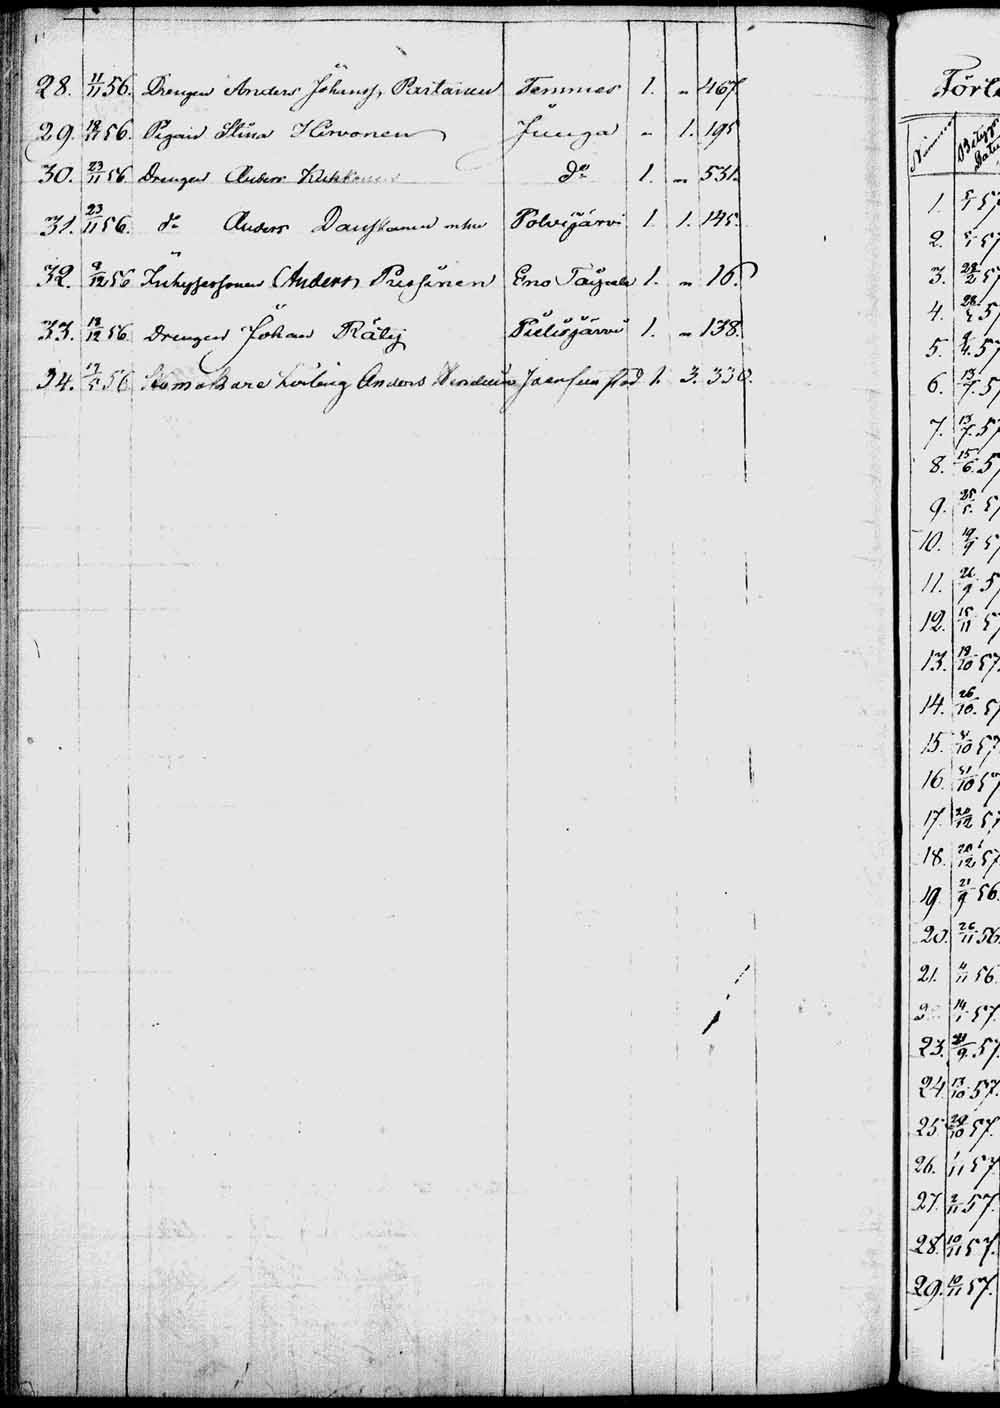 28. 11/11 56. Drengen Anders Johanss. Partanen Temmes 1. „ 467.
29. 18/11 56. Pigan Stina Hirvonen Juuga „ 1. 195
30. 23/11 56. Drengen Anders Kukkonen do 1. „ 531.
31. 23/11 56. do Anders m hu Polvijärvi 1. 1. 145.
32. 9/12 56 Inhysessonen Anders Pursiinen Eno Taipale 1. „ 16.
33. 18/12 56. Drengen Johan Räty Pielisjärvi 1. „ 138.
34. 17/5 56 Skomakare Lärling Anders Joensuu stad 1. 3. 336.
Förte
Nummer Betygets Datum
1. 5/1 57
2. 5/1 57
3. 22/2 57
4. 28/2 57
5. 9/4 57
6. 13/7 57
7. 13/7 57
8. 15/6 57
9. 25/5 57
10. 19/9 57
11. 26/9 57
12. 15/11 57
13. 18/10 57.
14. 26/10 57
15. 31/10 57
16. 31/10 57
17. 20/12 57
18. 20/12 57
19. 21/9 56.
20. 26/11 56.
21. 11/11 56.
2 14/1 57.
23. 21/9 57.
24. 13/10 57.
25. 29/10 57.
26. 1/11 57
27. 2/11 57.
28. 10/11 57.
29. 10/11 57.